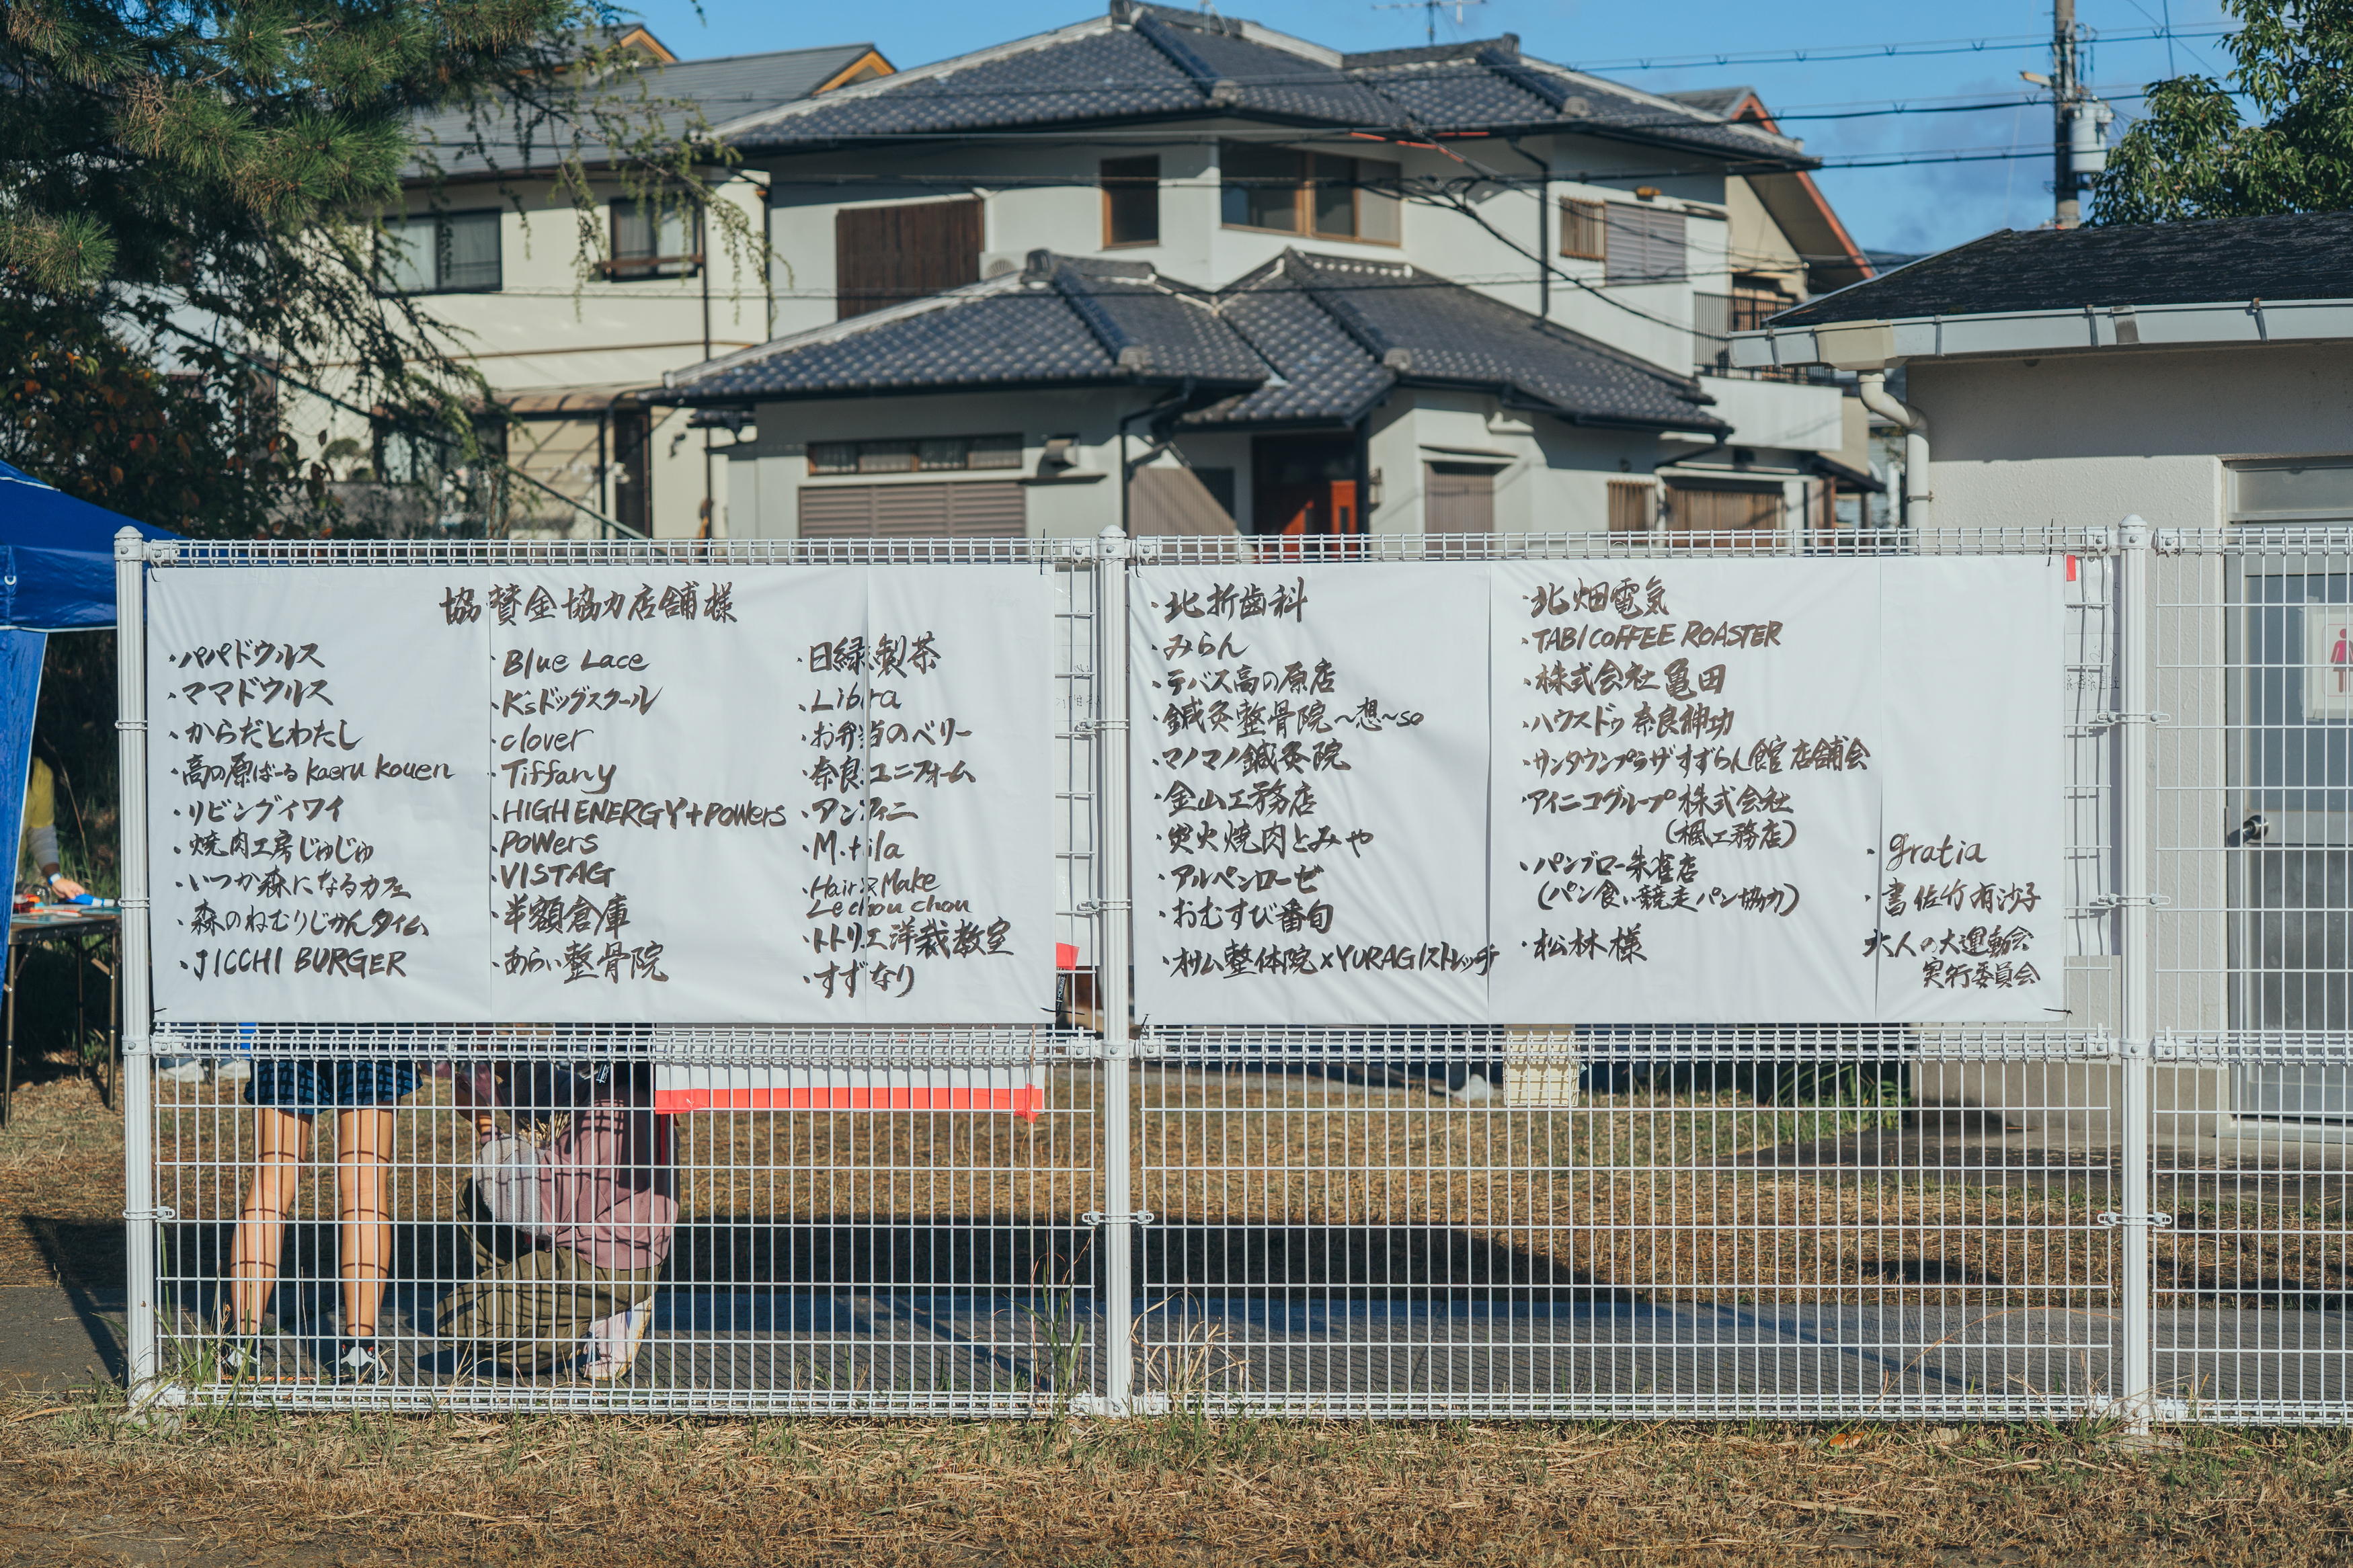 協賛金協力店舗様
・パパドウルス
・ママドウルス
・からだとわたし
・高の原ばーるkaeru kouen
・リビングイワイ
・焼肉工房じゅじゅ
・いつか森になるカフェ
・森のねむりじかんタイム
・JICCHI BURGER
・Blue Lace
・K'sドッグスクール
・clover
・Tiffany
・HIGH ENERGY+POWERS
・POWERS
・VISTAG
・半額倉庫
・あらい整骨院
・日緑製茶
・Libra
・お弁当のベリー
・奈良ユニフォーム
・アンフィニ
・M.tila
・Hair&Make
Le chou chou
・トトリエ洋裁教室
・すずなり
・北折歯科
・みらん
・テバス高の原店
・鍼灸整骨院～想～so
・マノマノ鍼灸院
・金山工務店
・炭火焼肉とみや
・アルペンローゼ
・おむすび番旬
・オサム整体院×YURAGIストレッチ
・北畑電気
・TABI COFFEE ROASTER
・株式会社亀田
・ハウスドゥ奈良紳功
・サンタウンプラザすずらん館店舗会
・アイニコグループ株式会社
(楓工務店)
・パンブロー朱雀店
(パン食い競走パン協力)
・松林様
・gratia
・書 佐竹有沙子
大人の大運動会
実行委員会